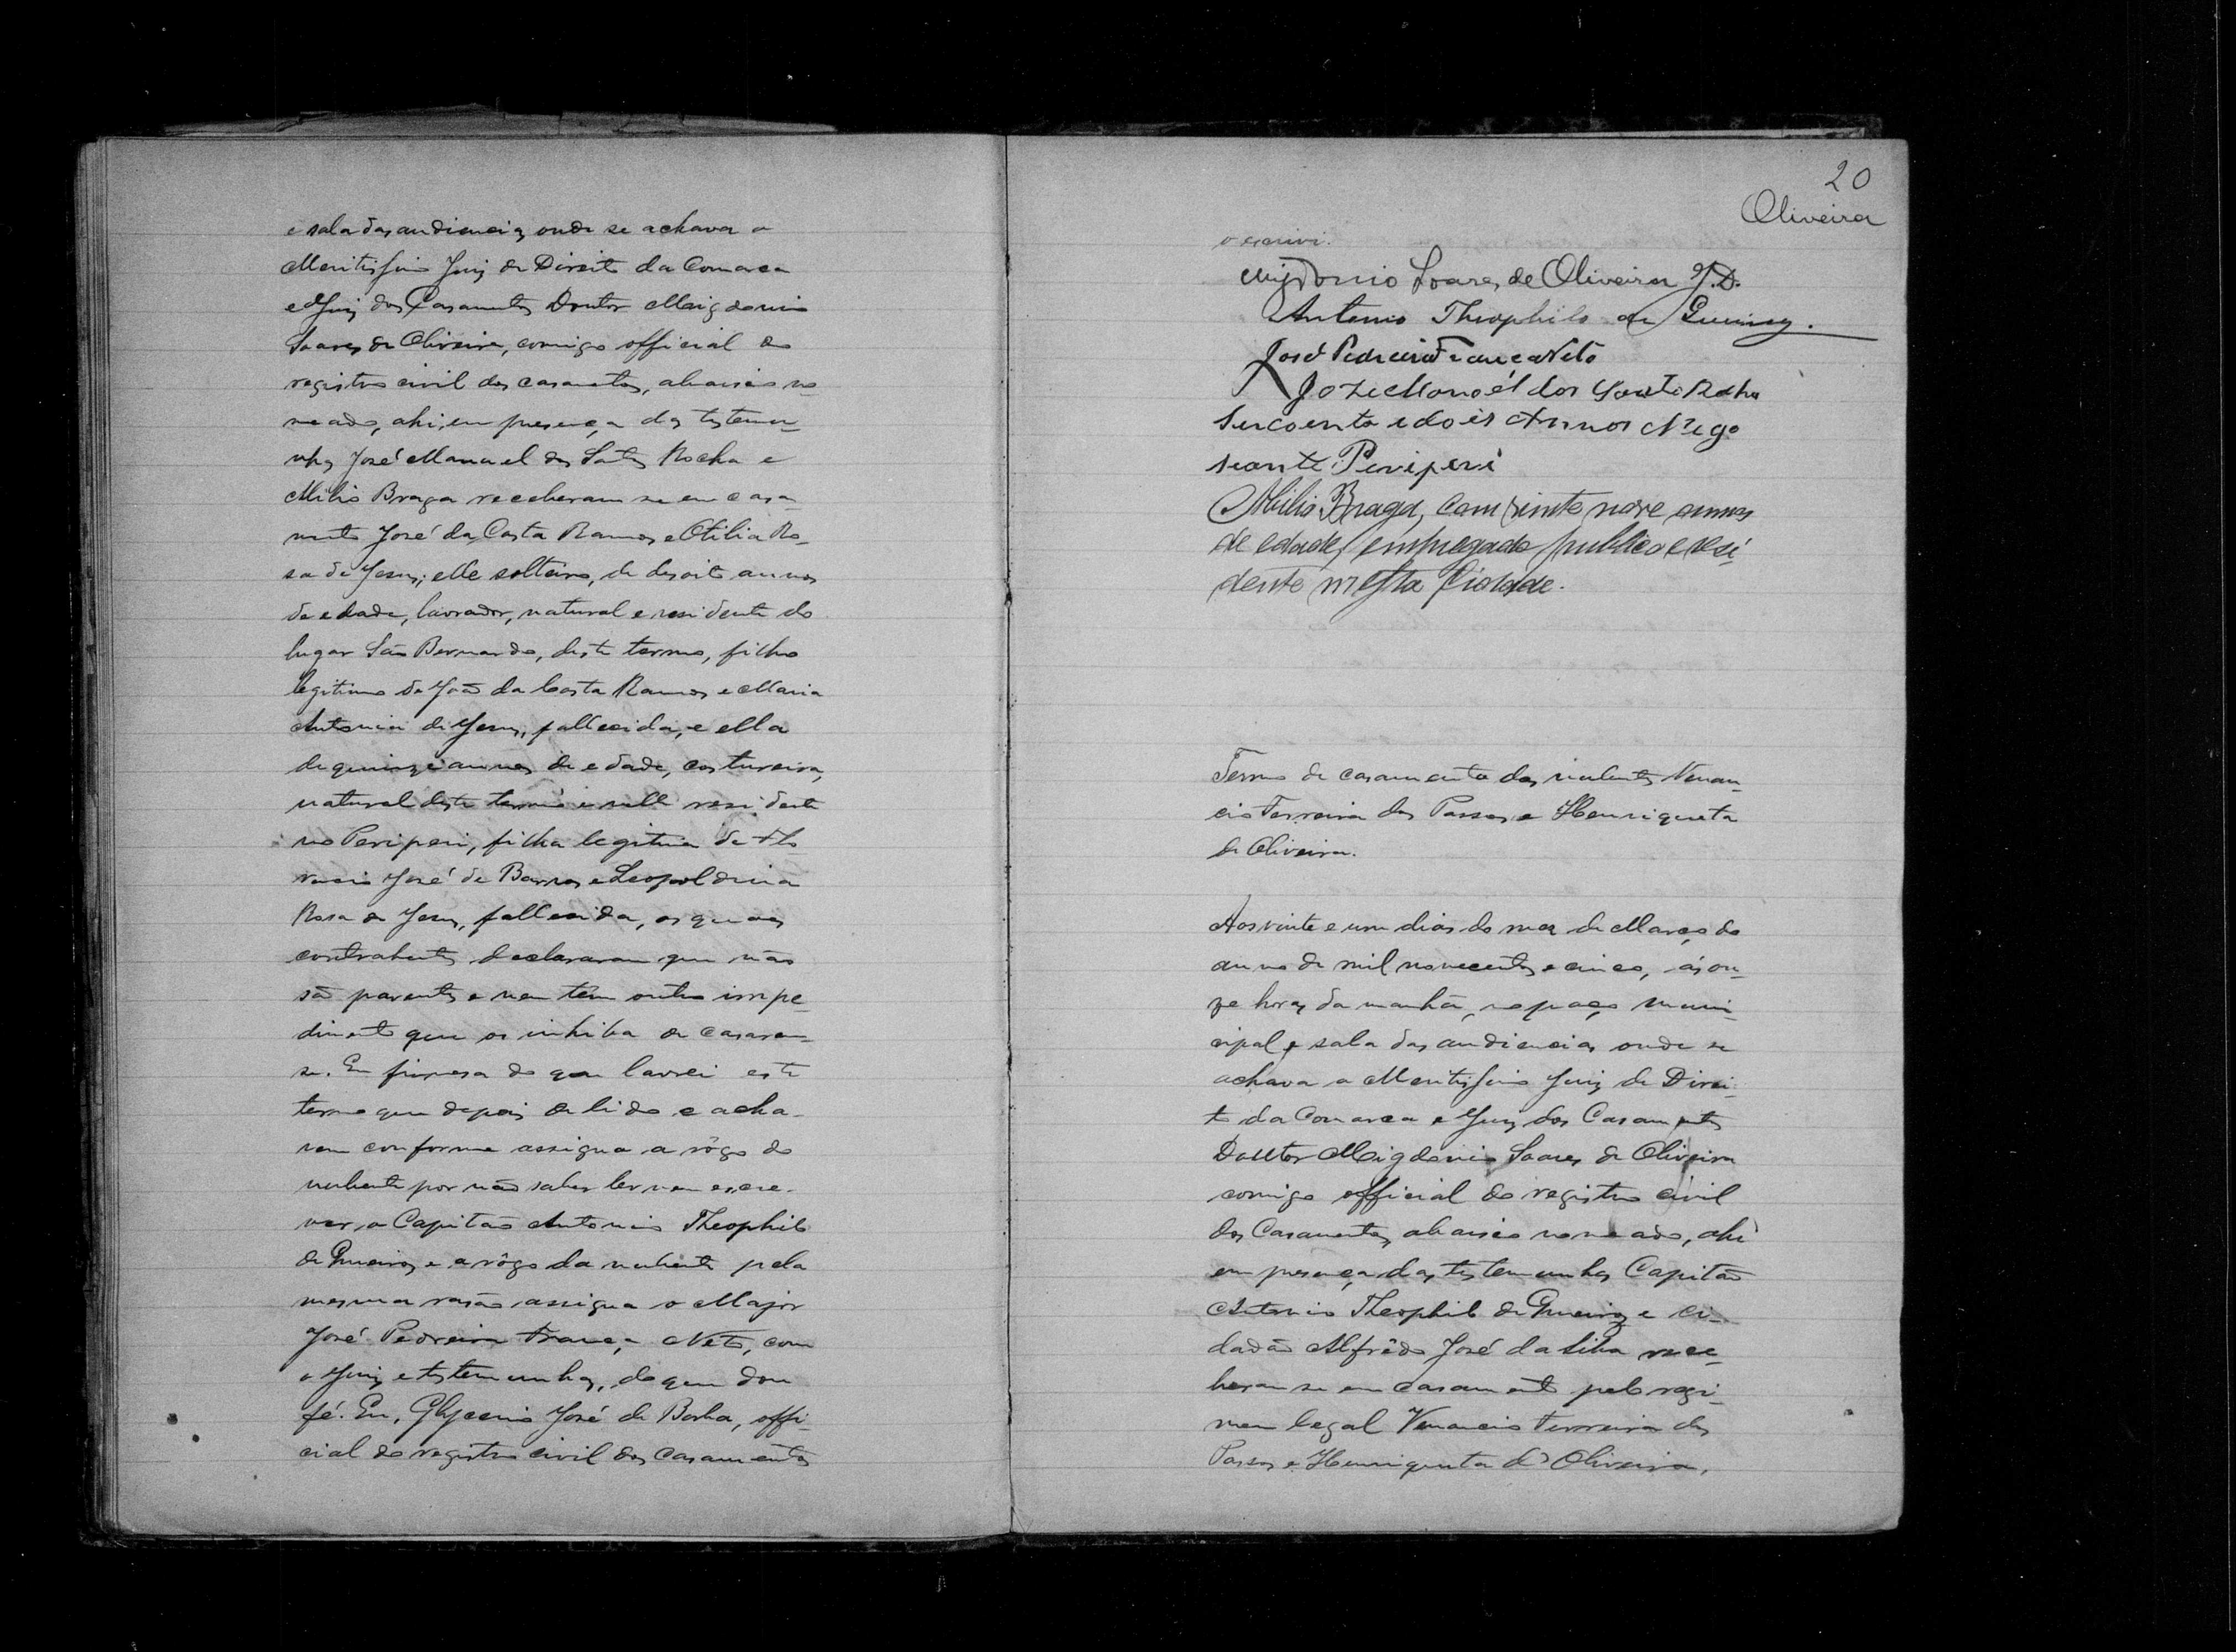 e sala das audiencias onde se achava o
Meritissimo Juiz de Direito da Comarca
e Juiz dos Casamentos Doutor Migdonio
Soares de Oliveira, comigo official do
registro civil dos casamentos, abaixo no-
meado, ahi, em presença das testemu-
nhas José Manoel dos Santos Rocha e
Abilio Braga receberam se em casa-
mento José da Costa Ramos e Otilia Ro-
sa de Jesus; elle solteiro, de desoito annos
de edade, lavrador, natural e residente do
lugar São Bernardo, deste termo, filho
legitimo de João da Costa Ramos e Maria
Antonia de Jesus, fallecida, e ella
de quinze annos de edade, costureira,
natural deste termo e nelle residente
no Periperi, filha legitima de Flo
rencio José de Barros e Leopoldina
Rosa de Jesus, fallecida, os quaes
contrahentes declararam que não
são parentes e nem têm outro impe-
dimento que os inhiba de casarem-
se. Em firmesa do que lavrei este
termo que depois de lido e acha-
rem conforme assigna a rôgo do
nubente por não saber ler nem escre-
ver, o Capitão Antonio Theophilo
de Queiroz e a rôgo da nubente pela
mesma rasão assigna o Major
José Pedreira França Neto, com
o Juiz e testemunhas, do que dou
fé. Eu, Glycerio José de Borba, offi-
cial do registro civil dos casamentos
20
Oliveira
o escrivi.
Migdonio Soares de Oliveira J. D.
Antonio Theophilo de Queiroz.
José Pedreira França Neto
Joze Manoél dos Santo Rocha
sincoenta e dois Annos Nego
seante Periperi
Abilio Braga, com vinte nove annos
de edade, empregado publico e resi
dente nesta Cidade.
Termo de casamento dos nubentes Venan-
cio Ferreira dos Passos e Henriqueta
de Oliveira.
Aos vinte e um dias do mez de Março do
anno de mil novecentos e cinco, ás on-
ze horas da manhã, no paço muni-
cipal e sala das audiencias onde se
achava o Meritissimo Juiz de Direi-
to da Comarca e Juiz dos Casamentos
Doutor Migdonio Soares de Oliveira
comigo official do registro civil
dos Casamentos, abaixo nomeado, ahi
em presença das testemunhas Capitão
Antonio Theophilo de Queiroz e ci-
dadão Alfrêdo José da Silva rece-
beram se em casamento pelo regi-
men legal Venancio Ferreira dos
Passos e Henriqueta d'Oliveira,